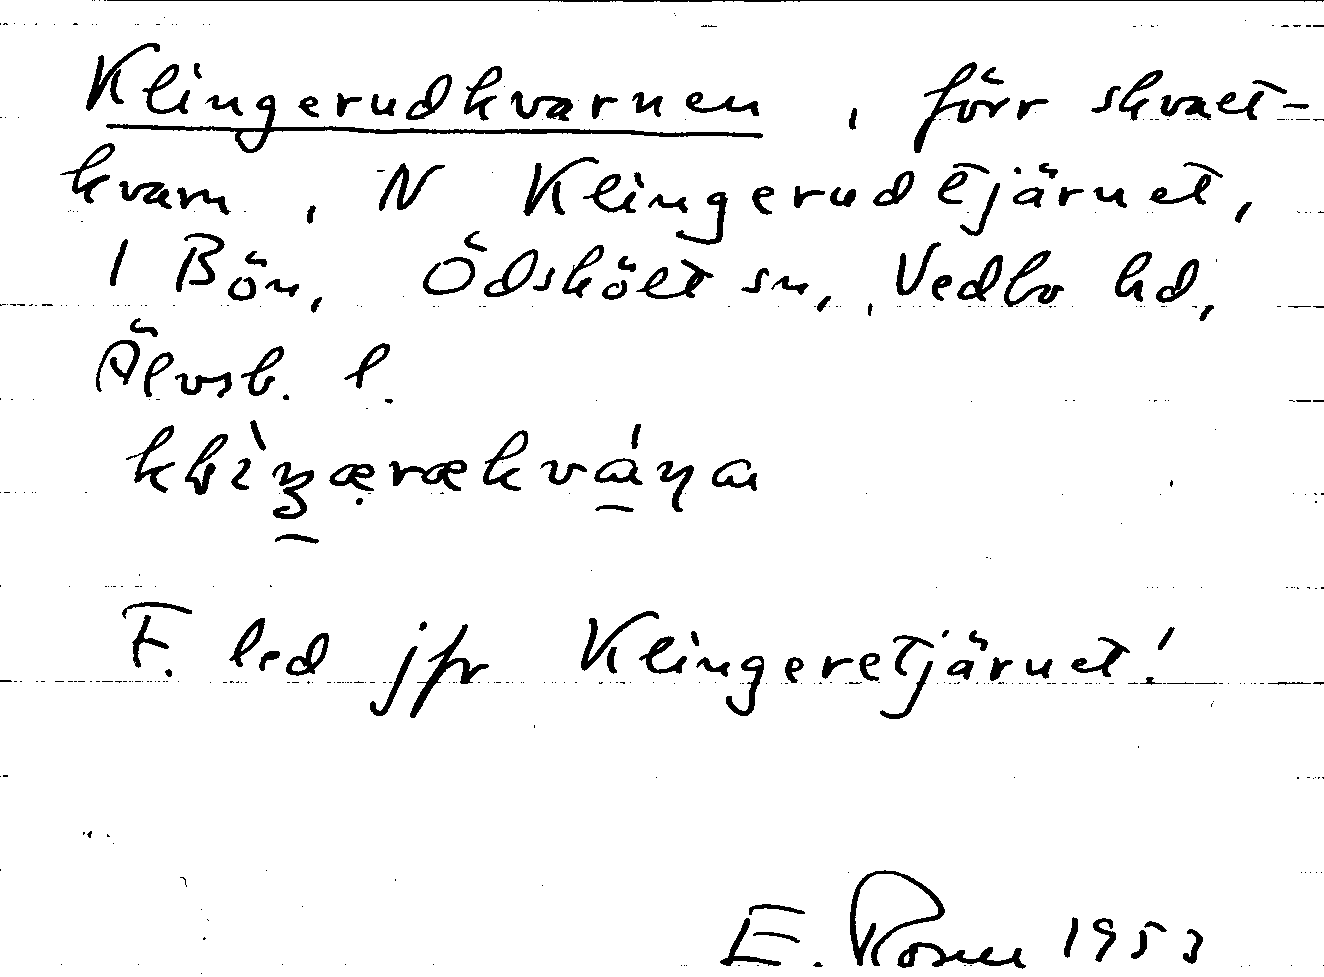 Klingerudkvarnen, förr skvalt-
kvarn, N Klingerudtjärnet,
i Bön, Ödskölt sn, Vedbo hd,
Älvsb. l.
F. led jfr Klingeretjärnet!
E. Rosen 1953